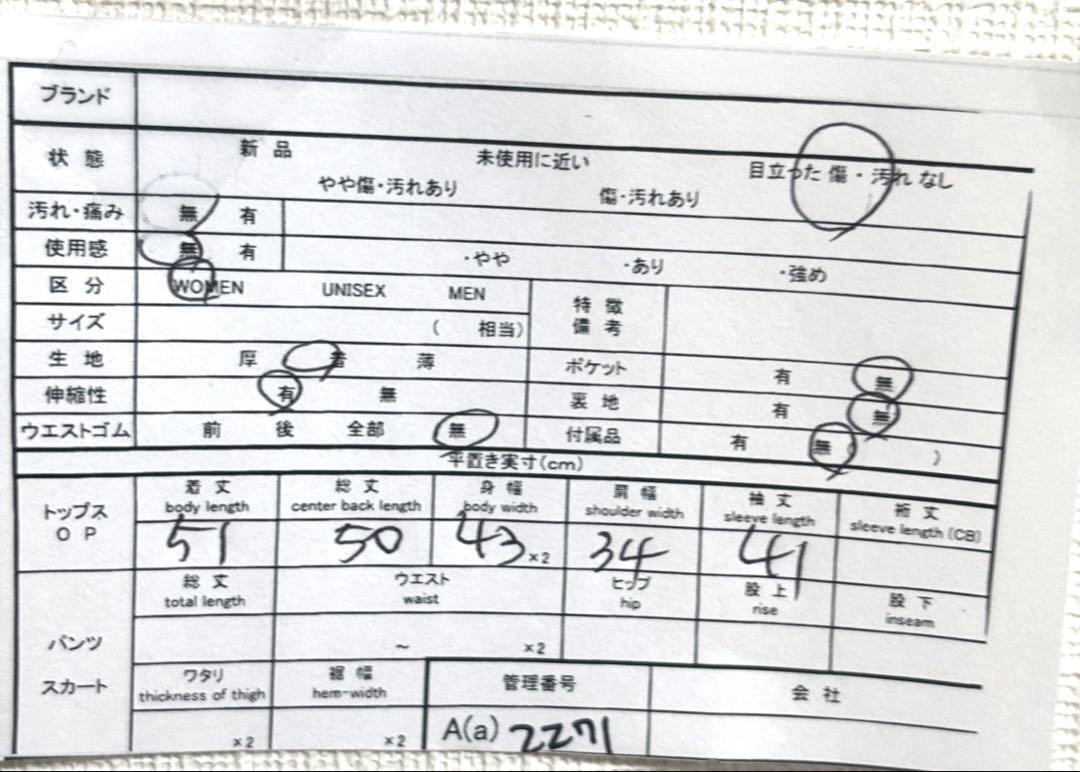 ブランド
状態 新品 未使用に近い 目立った 傷・汚れ なし
やや傷・汚れあり 傷・汚れあり
汚れ・痛み 無 有
使用感 無 有 ・やや ・あり ・強め
区分 WOMEN UNISEX MEN 特徴
サイズ ( 相当) 備考
生地 厚 普 薄 ポケット 有 無
伸縮性 有 無 裏地 有 無
ウエストゴム 前 後 全部 無 付属品 有 無 ( )
平置き実寸(cm)
着丈 総丈 身幅 肩幅 袖丈 裄丈
body length center back length body width shoulder width sleeve length sleeve length (CB)
トップス
OP
51 50 43 ×2 34 41
総丈 ウエスト ヒップ 股上 股下
total length waist hip rise inseam
パンツ
~ ×2
スカート
ワタリ 裾幅 管理番号 会社
thickness of thigh hem-width
×2 ×2 A(a) 2271